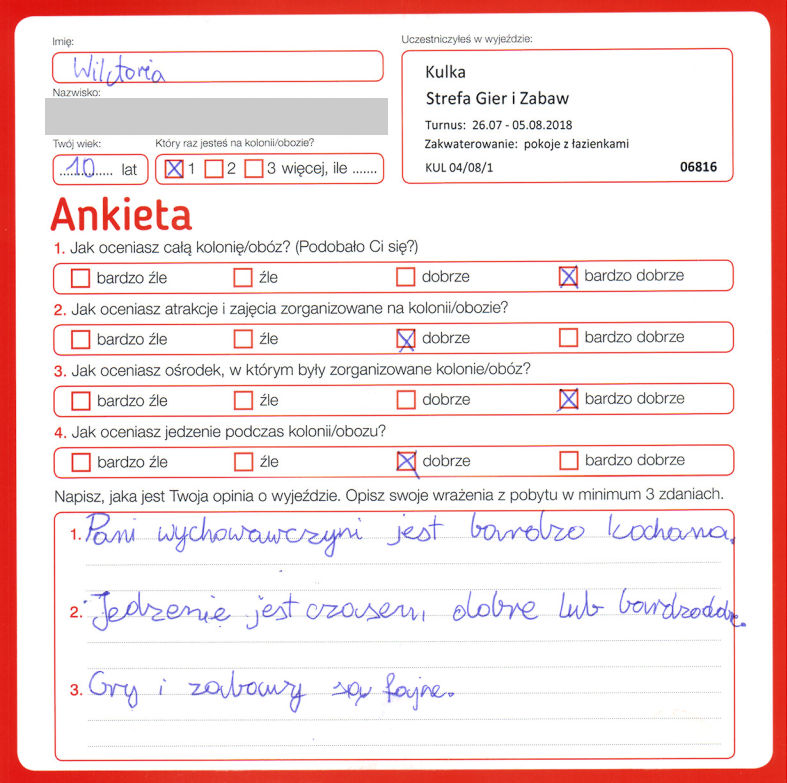 Imię:
Wiktoria
Nazwisko:
Twój wiek:
10 lat
Który raz jesteś na kolonii/obozie?
1 2 3 więcej, ile .......
Uczestniczyłeś w wyjeździe:
Kulka
Strefa Gier i Zabaw
Turnus: 26.07 - 05.08.2018
Zakwaterowanie: pokoje z łazienkami
KUL 04/08/1 06816
Ankieta
1. Jak oceniasz całą kolonię/obóz? (Podobało Ci się?)
bardzo źle źle dobrze bardzo dobrze
2. Jak oceniasz atrakcje i zajęcia zorganizowane na kolonii/obozie?
bardzo źle źle dobrze bardzo dobrze
3. Jak oceniasz ośrodek, w którym były zorganizowane kolonie/obóz?
bardzo źle źle dobrze bardzo dobrze
4. Jak oceniasz jedzenie podczas kolonii/obozu?
bardzo źle źle dobrze bardzo dobrze
Napisz, jaka jest Twoja opinia o wyjeździe. Opisz swoje wrażenia z pobytu w minimum 3 zdaniach.
1. Pani wychowawczyni jest bardzo kochana.
2. Jedzenie jest czasem, dobre lub bardzo
3. Gry i zabawy są fajne.